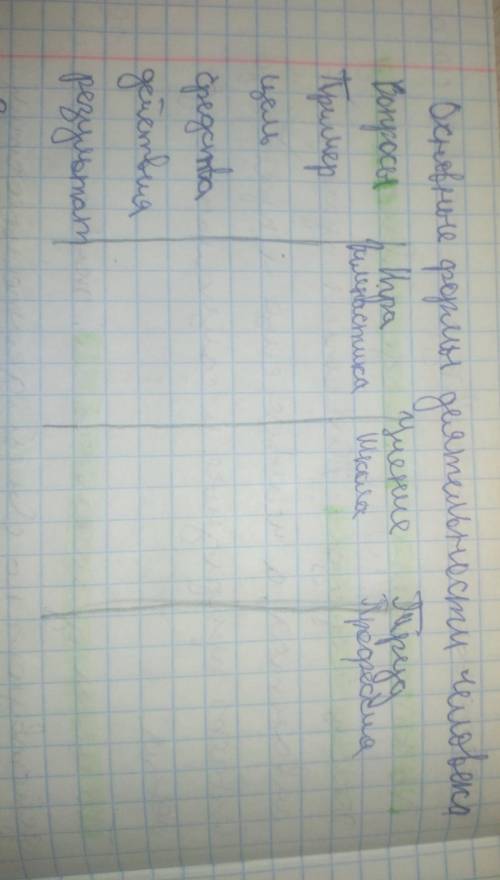 Основные формы деятельности человека
Вопросы Игра Учение Труд
Пример Гимнастика Школа Профессия
цель
средства
действия
результат